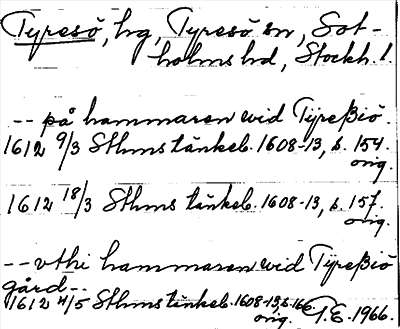 Tyresö, hg, Tyresö sn, Sot-
holms hd, Stockh. l.
-- på hammaren wid Tÿreßiö.
1612 9/3 Sthms tänkeb. 1608-13, s. 154.
orig.
1612 18/3 Sthms tänkeb. 1608-13, s. 157.
orig.
-- vthi hammaren wid Tÿreßiö
gård--
1612 4/5 Sthms tänkeb. 1608-13, s.
orig. T.E. 1966.